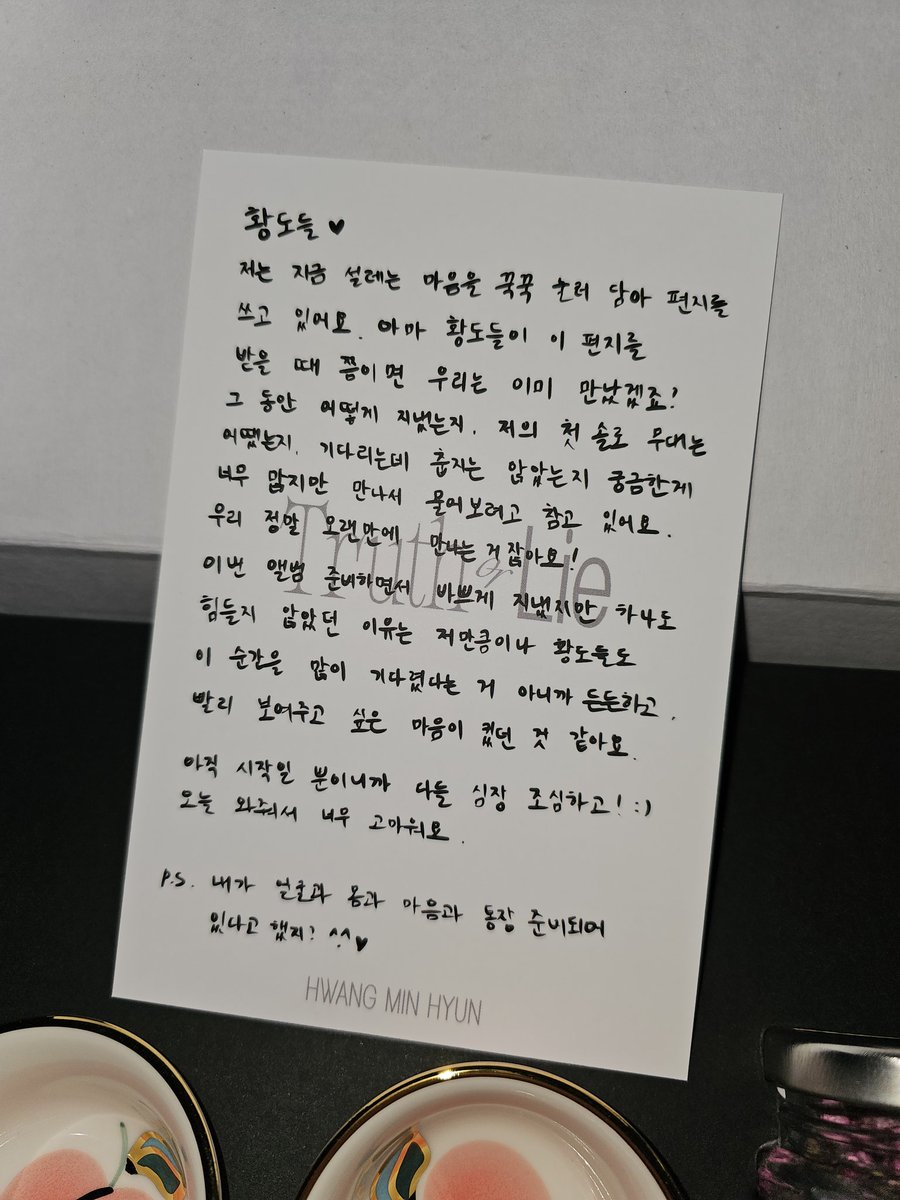 황도들 ♥
저는 지금 설레는 마음을 꾹꾹 눌러 담아 편지를
쓰고 있어요. 아마 황도들이 이 편지를
받을 때 쯤이면 우리는 이미 만났겠죠!
그 동안 어떻게 지냈는지, 저의 첫 솔로 무대는
어땠는지, 기다리는데 춥지는 않았는지 궁금한게
너무 많지만 만나서 물어보려고 참고 있어요.
우리 정말 오랜만에 만나는 거잖아요!
Truth or Lie
이번 앨범 준비하면서 바쁘게 지냈지만 하나도
힘들지 않았던 이유는 저만큼이나 황도들도
이 순간을 많이 기다렸다는 거 아니까 든든하고,
빨리 보여주고 싶은 마음이 컸던 것 같아요.
아직 시작일 뿐이니까 다들 심장 조심하고! :)
오늘 와줘서 너무 고마워요.
P.S. 내가 얼굴과 몸과 마음과 통장 준비되어
있냐고 했지? ^^♥
HWANG MIN HYUN